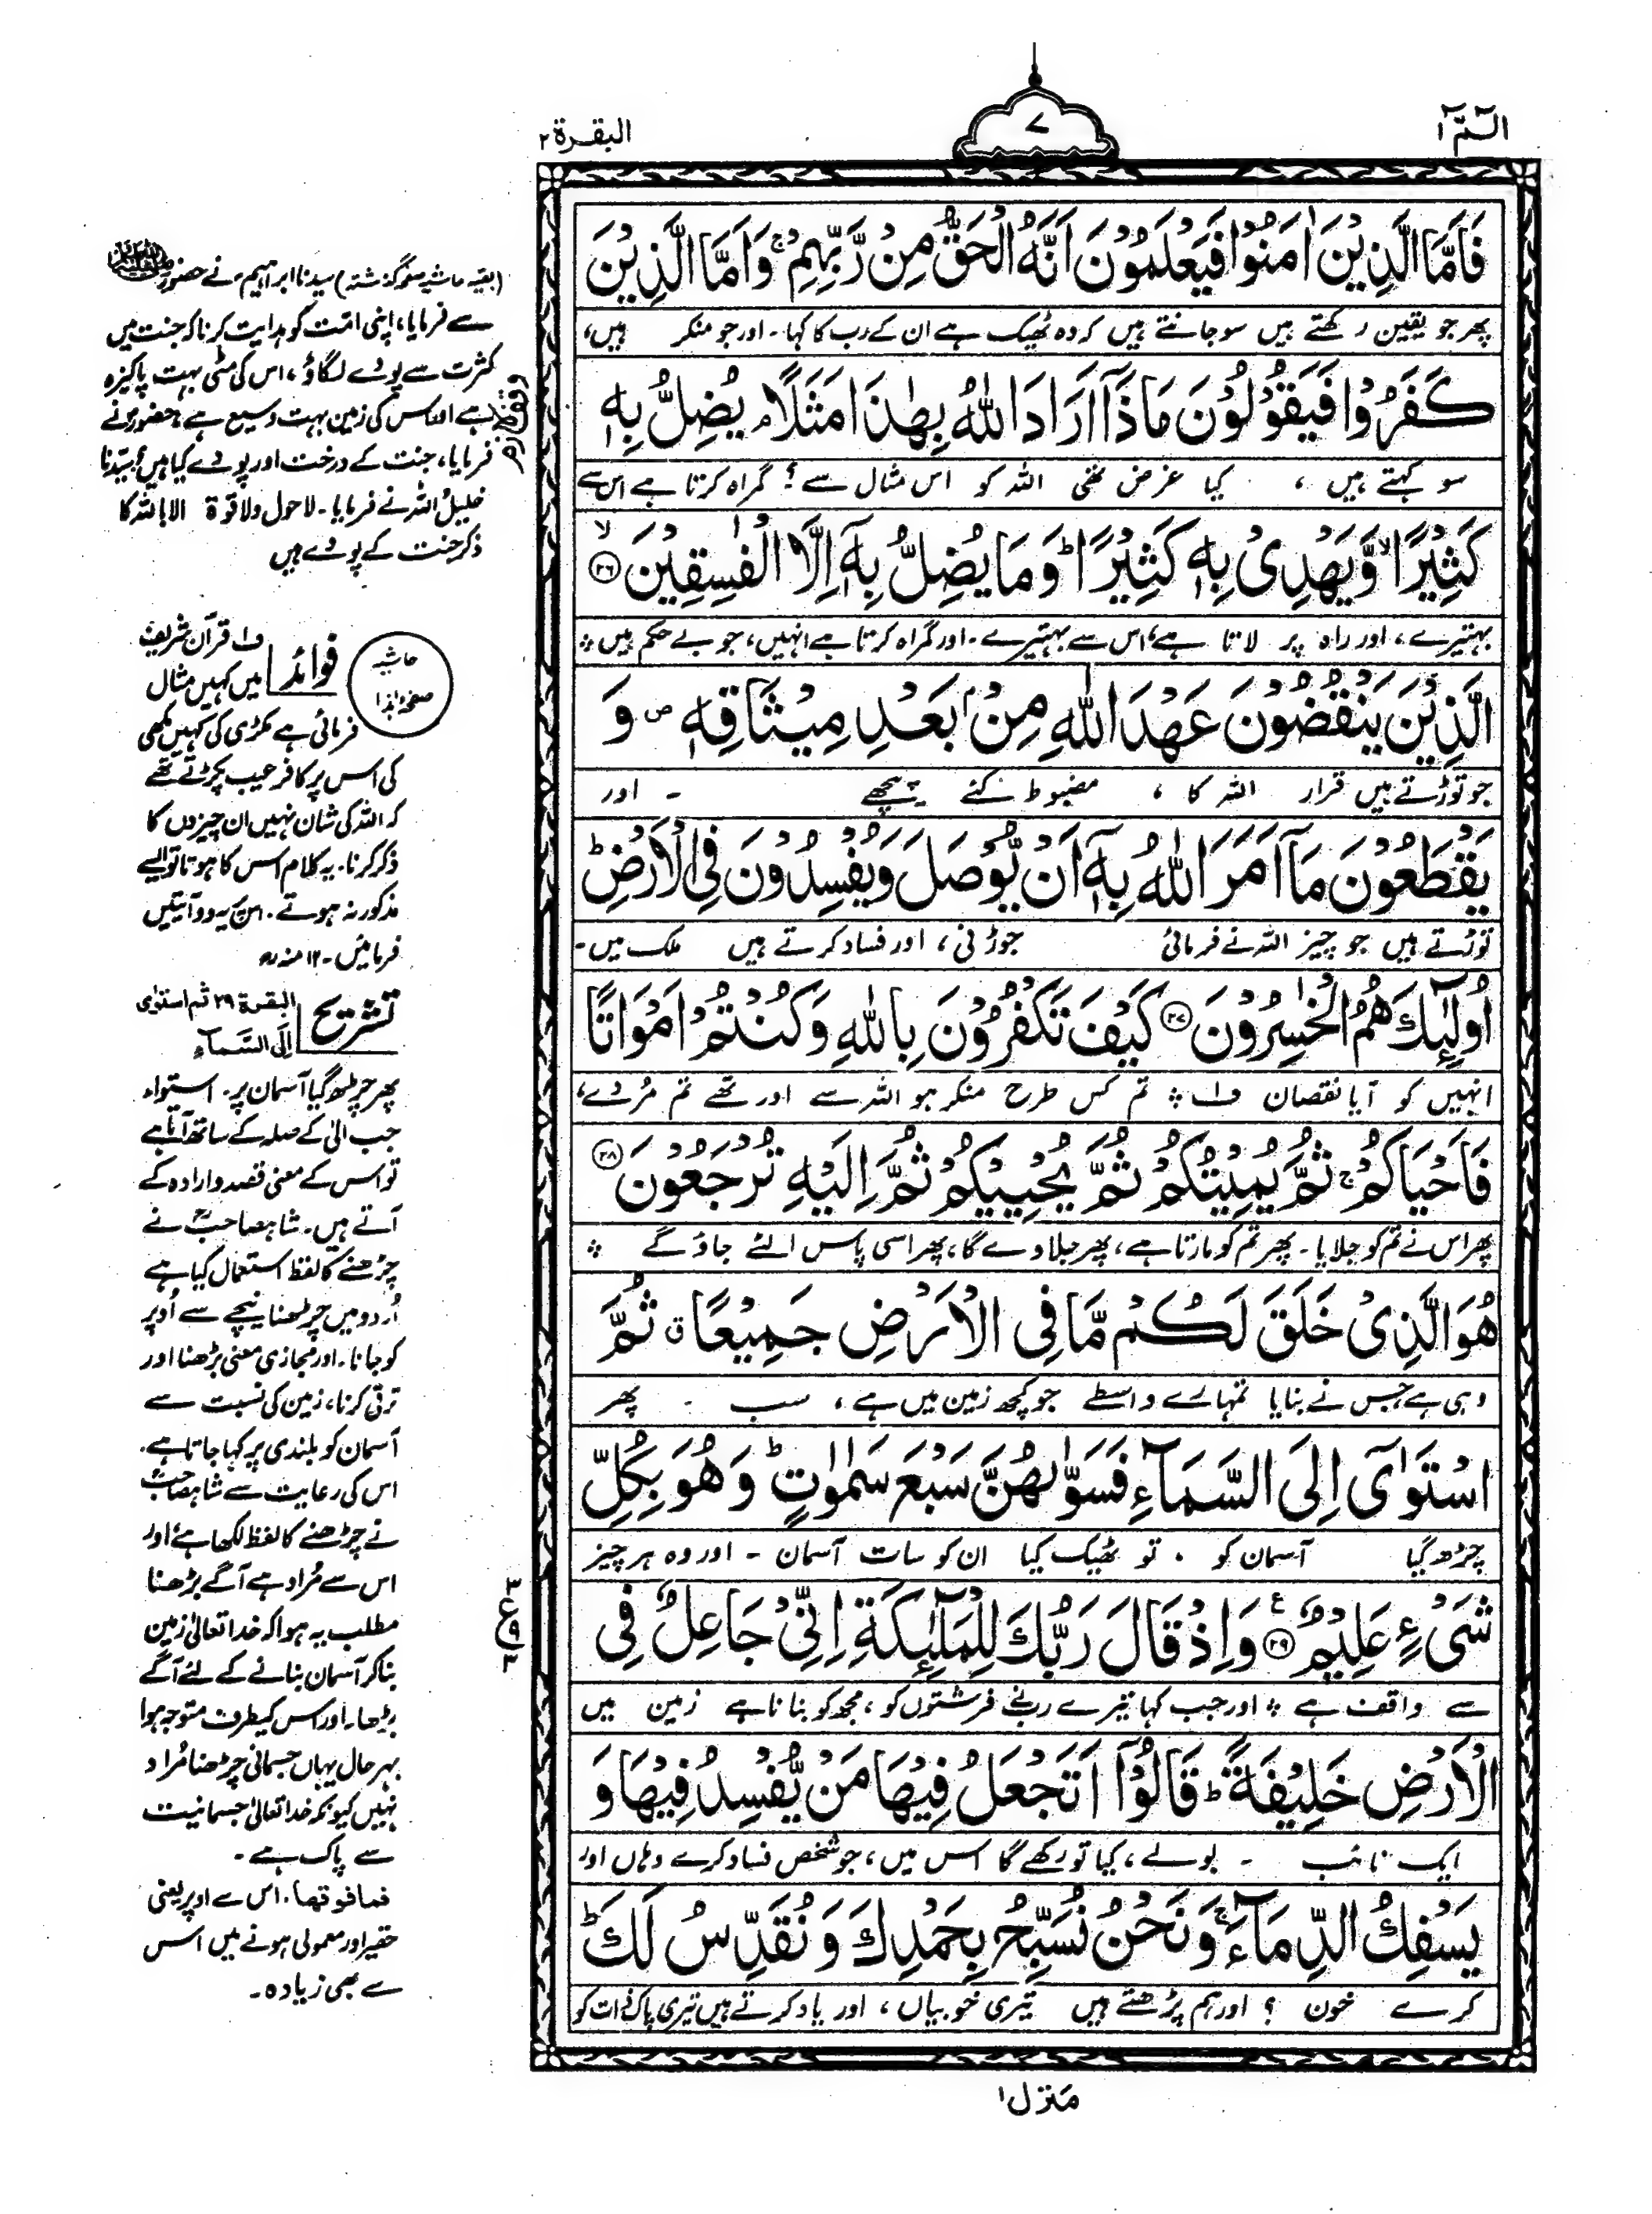 الٓـمّٓ ١
٧
البقرة ٢
فَاَمَّا الَّذِيْنَ اٰمَنُوْا فَيَعْلَمُوْنَ اَنَّهُ الْحَقُّ مِنْ رَّبِّهِمْ ۚ وَاَمَّا الَّذِيْنَ
پھر جو یقین رکھتے ہیں سو جانتے ہیں کہ وہ ٹھیک ہے ان کے رب کا کہا۔ اور جو منکر ہیں،
كَفَرُوْا فَيَقُوْلُوْنَ مَاذَآ اَرَادَ اللّٰهُ بِهٰذَا مَثَلًا ۘ يُضِلُّ بِهٖ
سو کہتے ہیں، کیا غرض تھی اللہ کو اس مثال سے؟ گمراہ کرتا ہے اس سے
كَثِيْرًا ۙ وَّيَهْدِىْ بِهٖ كَثِيْرًا ؕ وَمَا يُضِلُّ بِهٖٓ اِلَّا الْفٰسِقِيْنَ ۙ ﴿٢٦﴾
بہتیرے، اور راہ پر لاتا ہے، اس سے بہتیرے۔ اور گمراہ کرتا ہے انہیں، جو بے حکم ہیں ÷
الَّذِيْنَ يَنْقُضُوْنَ عَهْدَ اللّٰهِ مِنْۢ بَعْدِ مِيْثَاقِهٖ ۪ وَ
جو توڑتے ہیں قرار اللہ کا، مضبوط کئے پیچھے - اور
يَقْطَعُوْنَ مَآ اَمَرَ اللّٰهُ بِهٖٓ اَنْ يُّوْصَلَ وَيُفْسِدُوْنَ فِى الْاَرْضِ ؕ
توڑتے ہیں جو چیز اللہ نے فرمائی جوڑنی، اور فساد کرتے ہیں ملک میں۔
اُولٰٓئِكَ هُمُ الْخٰسِرُوْنَ ﴿٢٧﴾ كَيْفَ تَكْفُرُوْنَ بِاللّٰهِ وَكُنْتُمْ اَمْوَاتًا
انہیں کو آیا نقصان ف١ ÷ تم کس طرح منکر ہو اللہ سے اور تھے تم مُردے،
فَاَحْيَاكُمْ ۚ ثُمَّ يُمِيْتُكُمْ ثُمَّ يُحْيِيْكُمْ ثُمَّ اِلَيْهِ تُرْجَعُوْنَ ﴿٢٨﴾
پھر اس نے تم کو جلایا۔ پھر تم کو مارتا ہے، پھر جلاوے گا، پھر اسی پاس الٹے جاؤ گے ÷
هُوَ الَّذِىْ خَلَقَ لَكُمْ مَّا فِى الْاَرْضِ جَمِيْعًا ۗ ثُمَّ
وہی ہے جس نے بنایا تمہارے واسطے جو کچھ زمین میں ہے، سب - پھر
اسْتَوٰٓى اِلَى السَّمَآءِ فَسَوّٰىهُنَّ سَبْعَ سَمٰوٰتٍ ؕ وَهُوَ بِكُلِّ
چڑھ گیا آسمان کو تو ٹھیک کیا ان کو سات آسمان - اور وہ ہر چیز
شَىْءٍ عَلِيْمٌ ﴿٢٩﴾ وَاِذْ قَالَ رَبُّكَ لِلْمَلٰٓئِكَةِ اِنِّىْ جَاعِلٌ فِى
سے واقف ہے ÷ اور جب کہا تیرے رب نے فرشتوں کو، مجھ کو بنانا ہے زمین میں
الْاَرْضِ خَلِيْفَةً ؕ قَالُوْٓا اَتَجْعَلُ فِيْهَا مَنْ يُّفْسِدُ فِيْهَا وَ
ایک نائب - بولے، کیا تو رکھے گا اس میں، جو شخص فساد کرے وہاں اور
يَسْفِكُ الدِّمَآءَ ۚ وَنَحْنُ نُسَبِّحُ بِحَمْدِكَ وَنُقَدِّسُ لَكَ ؕ
کرے خون ؟ اور ہم پڑھتے ہیں تیری خوبیاں، اور یاد کرتے ہیں تیری پاک ذات کو
مَنزل ١
(بقیہ حاشیہ صفحہ گذشتہ) سیدنا ابراہیمؑ نے حضور
سے فرمایا، اپنی امّت کو ہدایت کرنا کہ جنت میں
کثرت سے پودے لگاؤ، اس کی مٹی بہت پاکیزہ
ہے اور اس کی زمین بہت وسیع ہے، حضورؐ نے
فرمایا، جنت کے درخت اور پودے کیا ہیں؟ سیّدنا
خلیل اللہ نے فرمایا۔ لاحول ولا قوة الا باللہ کا
ذکر جنت کے پودے ہیں
حاشیہ
صفحہ ہٰذا
فوائد
ف١ قرآن شریف
میں کہیں مثال
فرمائی ہے مکڑی کی کہیں مکھی
کی اس پر کافر عیب پکڑتے تھے
کہ اللہ کی شان نہیں ان چیزوں کا
ذکر کرنا۔ یہ کلام اس کا ہوتا تو ایسے
مذکور نہ ہوتے۔ اس پر یہ دو آیتیں
فرمائیں۔ ١٢ منہ رح
تشریح
البقرة ٢٩ ثم استوٰی
اِلَی السَّمَآء
پھر چڑھ گیا آسمان پر۔ استواء
جب الیٰ کے صلہ کے ساتھ آتا ہے
تو اس کے معنی قصد و ارادہ کے
آتے ہیں۔ شاہ صاحبؒ نے
چڑھنے کا لفظ استعمال کیا ہے
اُردو میں چڑھنا نیچے سے اُوپر
کو جانا۔ اور مجازی معنی بڑھنا اور
ترقی کرنا، زمین کی نسبت سے
آسمان کو بلندی پر کہا جاتا ہے۔
اس کی رعایت سے شاہ صاحبؒ
نے چڑھنے کا لفظ لکھا ہے اور
اس سے مُراد ہے آگے بڑھنا
مطلب یہ ہوا کہ خدا تعالیٰ زمین
بنا کر آسمان بنانے کے لئے آگے
بڑھا۔ اور اس کی طرف متوجہ ہوا
بہر حال یہاں جسمانی چڑھنا مُراد
نہیں کیونکہ خدا تعالیٰ جسمانیت
سے پاک ہے۔
فما فوقھا۔ اس سے اوپر یعنی
حقیر اور معمولی ہونے میں اس
سے بھی زیادہ۔